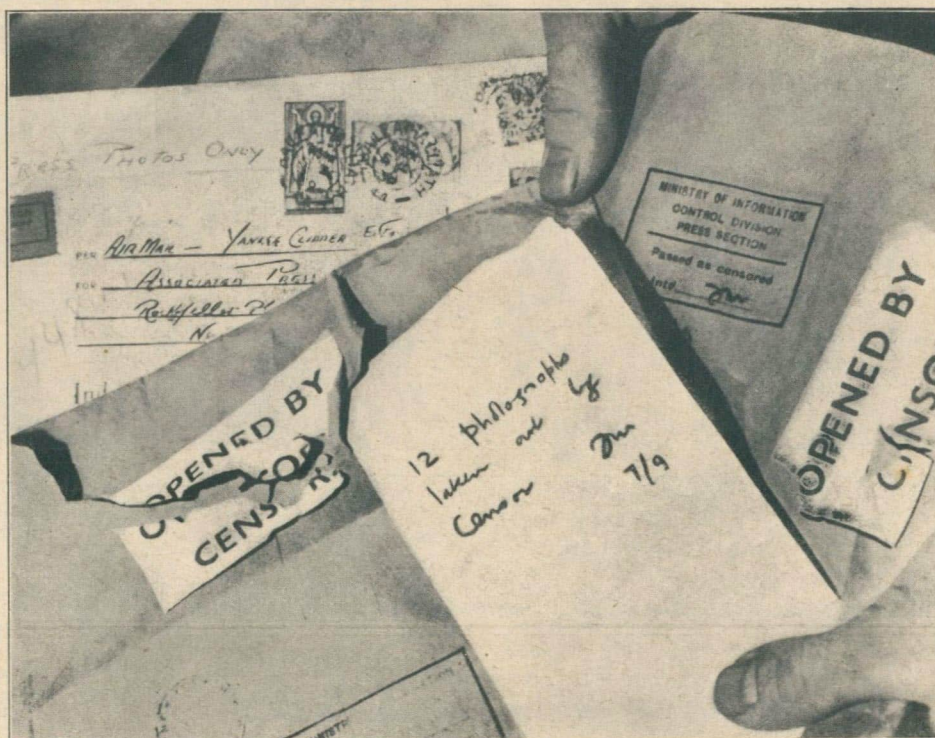 PRESS PHOTOS ONLY
PER AIR MAIL - YANKEE CLIPPER
FOR ASSOCIATED PRESS
MINISTRY OF INFORMATION
CONTROL DIVISION
PRESS SECTION
Passed as censored
Intd.
OPENED BY
OPENED BY
CENSOR
12 photographs
taken out by
Censor
7/9